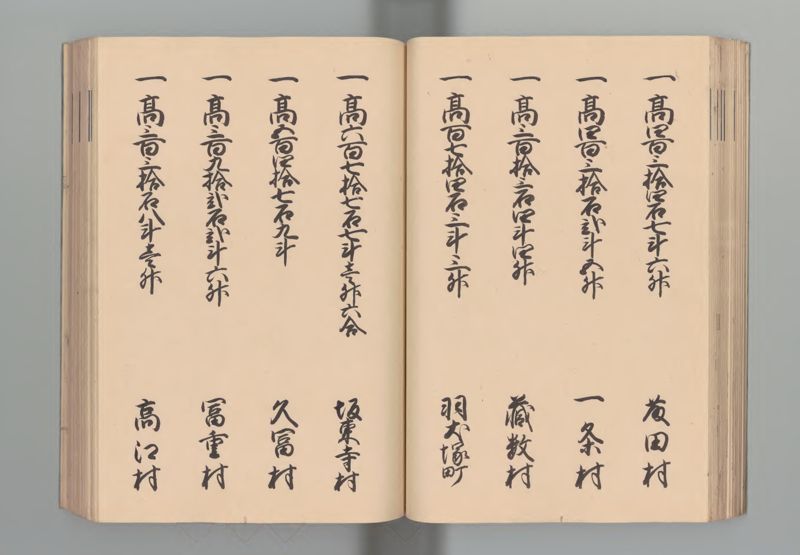 一高四百三拾四石七斗六升 黄田村
一高四百三拾石弐斗五升 一条村
一高三百拾三石四斗四升 蔵数村
一高百七拾四石三斗三升 羽犬塚町
一高六百七拾七石七斗壱升六合 坂東寺村
一高五百四拾七石九斗 久冨村
一高三百九拾弐石弐斗六升 冨重村
一高三百三拾石八斗壱升 高江村